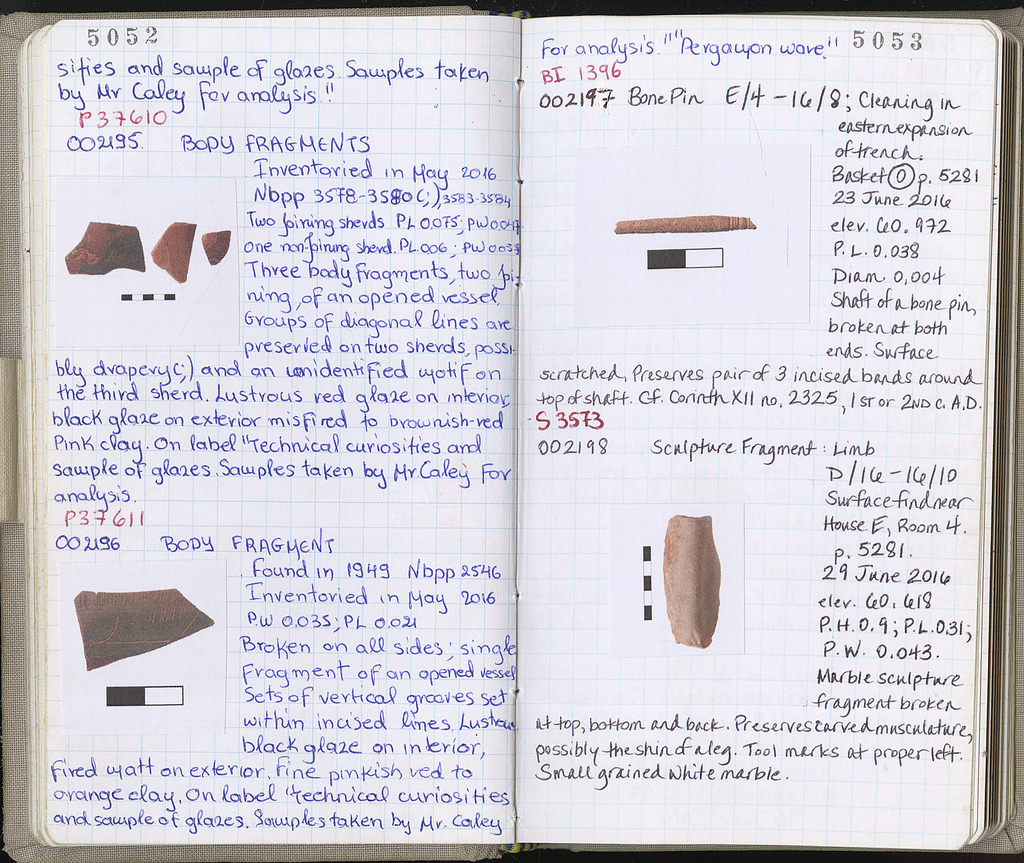 5052
sifies and sample of glazes. Samples taken
by Mr Caley for analysis."
P 37610
002195. BODY FRAGMENTS
Inventoried in May 2016.
Nbpp 3578-3580(;), 3583-3584
Two joining sherds PL 0.075; PW 0.047
one nonjoining sherd. PL 006; PW 0.033
Three body fragments, two joi-
ning, of an opened vessel.
Groups of diagonal lines are
preserved on two sherds, possi-
bly drapery(;) and an unidentified motif on
the third sherd. Lustrous red glaze on interior,
black glaze on exterior misfired to brownish-red
Pink clay. On label "Technical curiosities and
sample of glazes. Samples taken by Mr. Caley For
analysis.
P37611
002196 BODY FRAGMENT
Found in 1949 Nbpp 2546
Inventoried in May 2016
P.W 0.035; PL 0.021
Broken on all sides; single
Fragment of an opened vessel
Sets of vertical grooves set
within incised lines. Lustrous
black glaze on interior,
fired matt on exterior. Fine pinkish red to
orange clay. On label "Technical curiosities
and sample of glazes. Samples taken by Mr. Caley
5053
For analysis." "Pergamon ware"
BI 1396
002197 Bone Pin E/4-16/8; Cleaning in
eastern expansion
of trench.
Basket 0 p. 5281
23 June 2016
elev. 60.972
P.L. 0.038
Diam. 0,004
Shaft of a bone pin,
broken at both
ends. Surface
scratched, Preserves pair of 3 incised bands around
top of shaft. Cf. Corinth XII no. 2325, 1ST or 2ND C. A.D.
S 3573
002198 Sculpture Fragment: Limb
D/16-16/10
Surface find near
House E, Room 4.
p. 5281.
29 June 2016
elev. 60.618
P.H. 0.9; P.L. 0.31;
P.W. 0.043.
Marble sculpture
fragment broken
at top, bottom and back. Preserves carved musculature,
possibly the shin of a leg. Tool marks at proper left.
Small grained white marble.